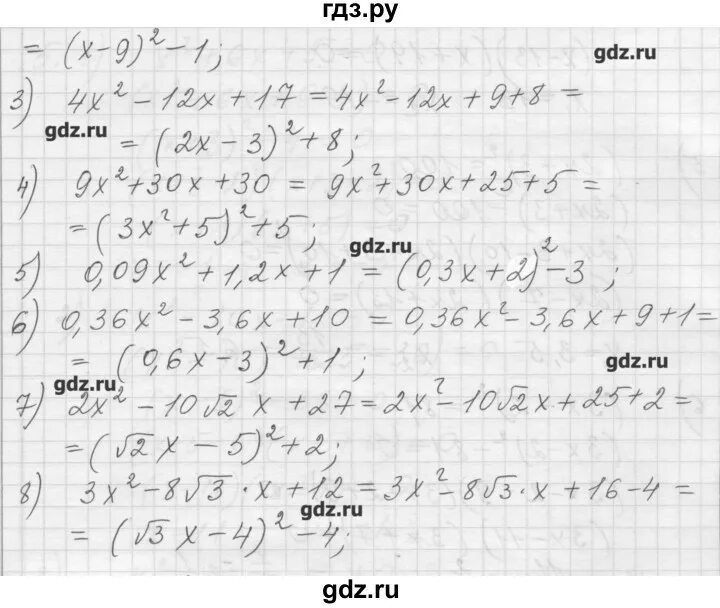 гдз.ру
= (x-9)² - 1;
gdz.ru
3) 4x² - 12x + 17 = 4x² - 12x + 9 + 8 =
gdz.ru
= (2x - 3)² + 8;
4) 9x² + 30x + 30 = 9x² + 30x + 25 + 5 =
= (3x² + 5)² + 5;
gdz.ru
5) 0,09x² + 1,2x + 1 = (0,3x + 2)² - 3;
6) 0,36x² - 3,6x + 10 = 0,36x² - 3,6x + 9 + 1 =
= (0,6x - 3)² + 1;
gdz.ru
gdz.ru
7) 2x² - 10√2 x + 27 = 2x² - 10√2x + 25 + 2 =
= (√2 x - 5)² + 2;
8) 3x² - 8√3 · x + 12 = 3x² - 8√3 · x + 16 - 4 =
gdz.ru
= (√3 x - 4)² - 4;
gdz.ru